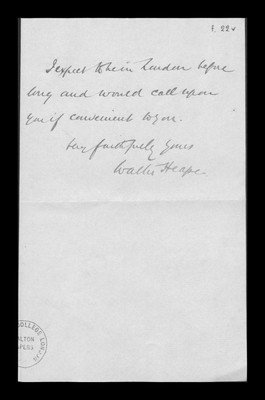 f. 22v
I expect to be in London before
long and would call upon
you if convenient to you.
Very faithfully yours
Walter Heape
COLLEGE LONDON